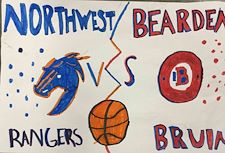 NORTHWEST BEARDEN
VS
B
RANGERS BRUIN